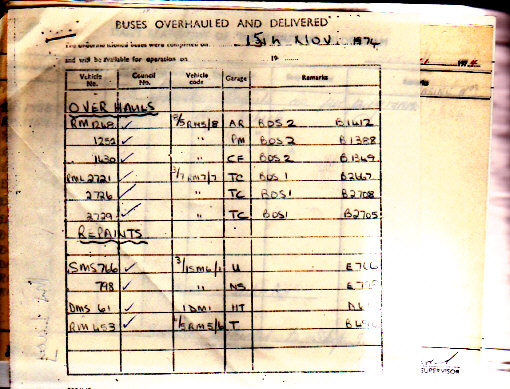 BUSES OVERHAULED AND DELIVERED
The undermentioned buses were completed on 15th NOV. 1974
and will be available for operation on 19
Vehicle No. Council No. Vehicle code Garage Remarks
OVERHAULS
RM1268 ✓ 5RM5/8 AR BDS 2 B1412
1252 ✓ " PM BDS 2 B1388
1630 ✓ " CF BDS 2 B1369
RML2721 ✓ 3/7RM7/7 TC BDS 1 B2667
2726 ✓ " TC BDS 1 B2708
2729 ✓ " TC BDS 1 B2705
REPAINTS
SMS766 ✓ U
798 ✓ " NS
DMS 61 ✓ 1DM1 HT
RM653 ✓ T
SUPERVISOR